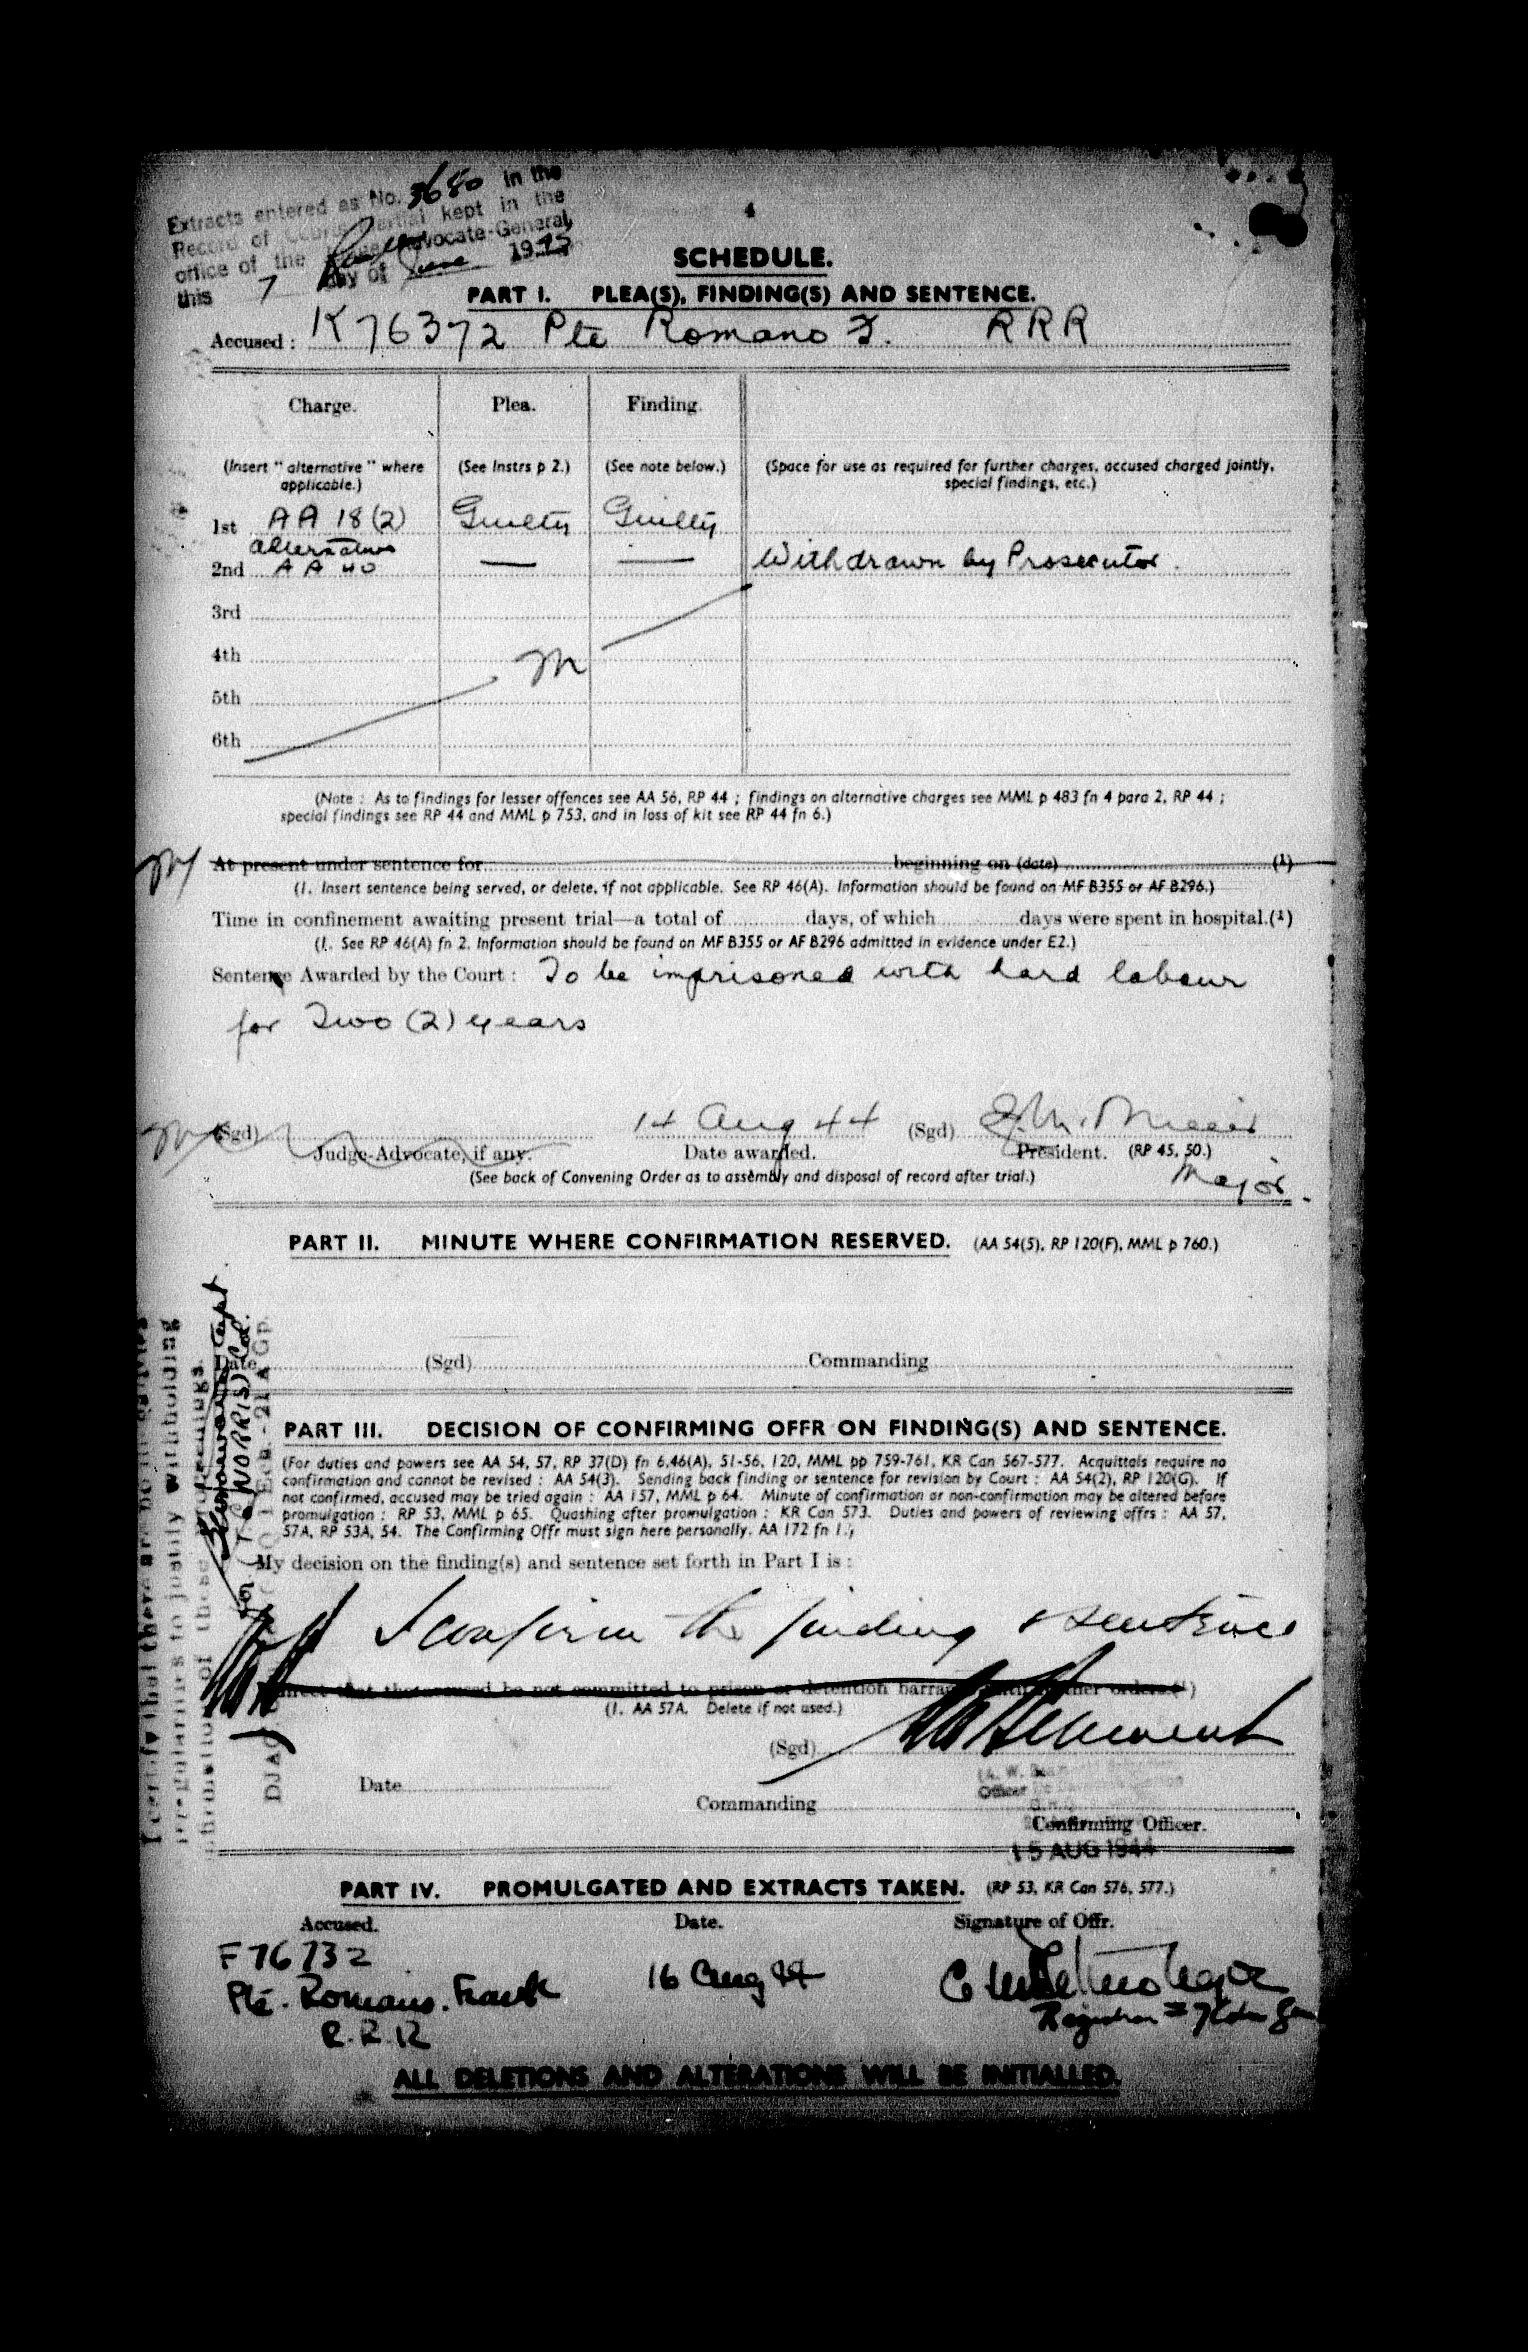 Extracts entered as No. 3680 in the
Record of Courts Martial kept in the
office of the Judge Advocate-General,
this 7 day of June 1945
4
SCHEDULE.
PART I. PLEA(S), FINDING(S) AND SENTENCE.
Accused: K76372 Pte Romano F. RRR
Charge. Plea. Finding.
(Insert "alternative" where applicable.) (See Instrs p 2.) (See note below.) (Space for use as required for further charges, accused charged jointly, special findings, etc.)
1st AA 18(2) Guilty Guilty
alternative
2nd AA 40 — — Withdrawn by Prosecutor.
3rd
4th
5th
6th
(Note: As to findings for lesser offences see AA 56, RP 44; findings on alternative charges see MML p 483 fn 4 para 2, RP 44;
special findings see RP 44 and MML p 753, and in loss of kit see RP 44 fn 6.)
At present under sentence for beginning on (date) (1)
(1. Insert sentence being served, or delete, if not applicable. See RP 46(A). Information should be found on MF B355 or AF B296.)
Time in confinement awaiting present trial—a total of days, of which days were spent in hospital.(1)
(1. See RP 46(A) fn 2. Information should be found on MF B355 or AF B296 admitted in evidence under E2.)
Sentence Awarded by the Court: To be imprisoned with hard labour
for Two (2) years
(Sgd) 14 Aug 44 (Sgd)
Judge-Advocate, if any. Date awarded. President. (RP 45, 50.)
(See back of Convening Order as to assembly and disposal of record after trial.) Major.
PART II. MINUTE WHERE CONFIRMATION RESERVED. (AA 54(5), RP 120(F), MML p 760.)
Date (Sgd) Commanding
PART III. DECISION OF CONFIRMING OFFR ON FINDING(S) AND SENTENCE.
(For duties and powers see AA 54, 57, RP 37(D) fn 6,46(A), 51-56, 120, MML pp 759-761, KR Can 567-577. Acquittals require no
confirmation and cannot be revised: AA 54(3). Sending back finding or sentence for revision by Court: AA 54(2), RP 120(G). If
not confirmed, accused may be tried again: AA 157, MML p 64. Minute of confirmation or non-confirmation may be altered before
promulgation: RP 53, MML p 65. Quashing after promulgation: KR Can 573. Duties and powers of reviewing offrs: AA 57,
57A, RP 53A, 54. The Confirming Offr must sign here personally. AA 172 fn 1.)
My decision on the finding(s) and sentence set forth in Part I is:
I confirm the finding & sentence
direct that the accused be not committed to prison or detention barracks until further orders.(1)
(1. AA 57A. Delete if not used.)
(Sgd)
Date
Commanding
Confirming Officer.
15 AUG 1944
PART IV. PROMULGATED AND EXTRACTS TAKEN. (RP 53, KR Can 576, 577.)
Accused. Date. Signature of Offr.
F76732
Pte. Romano. Frank 16 Aug 44
R.R.R
ALL DELETIONS AND ALTERATIONS WILL BE INITIALLED.